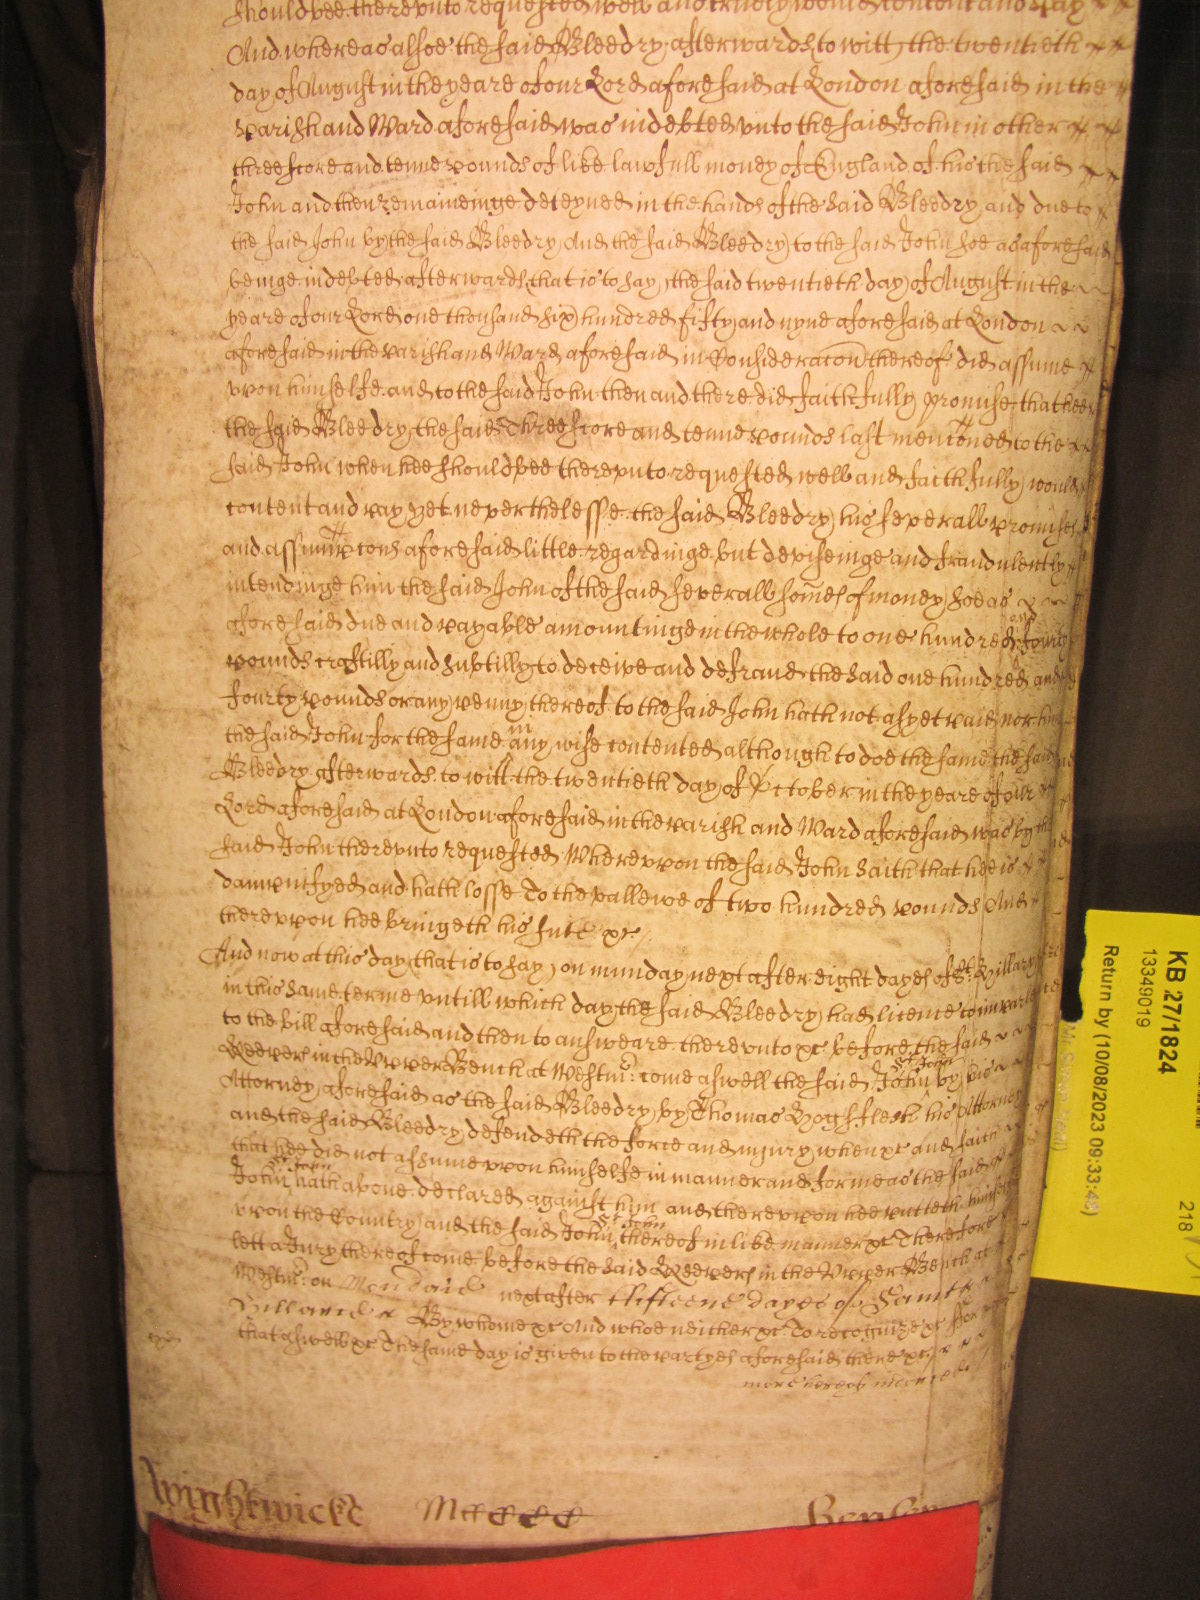 should bee thereunto requested well and truely would content and pay
And whereas alsoe the said Bleedry afterwards to witt the twentieth
day of August in the yeare of our Lord aforesaid at London aforesaid in the
parish and Ward aforesaid was indebted unto the said John in other
threescore and tenne pounds of like lawfull money of England of his the said
John and then remaineinge deteyned in the hands of the said Bleedry and due to
the said John by the said Bleedry And the said Bleedry to the said John soe as aforesaid
beinge indebted afterwards that is to say the said twentieth day of August in the
yeare of our Lord one thousand six hundred fifty and nyne aforesaid at London
aforesaid in the parish and Ward aforesaid in Consideracon thereof did assume
upon himselfe and to the said John then and there did faithfully promise that hee
the said Bleedry the said Threescore and tenne pounds last menconed to the
said John when hee should bee thereunto requested well and faithfully would
content and pay yet neverthelesse the said Bleedry his severall promises
and assumpcons aforesaid little regardinge but deviseinge and fraudulently
intendinge him the said John of the said severall somes of money soe as
aforesaid due and payable amountinge in the whole to one hundred and fourty
pounds craftilly and subtilly to deceive and defraud the said one hundred and
fourty pounds or any penny thereof to the said John hath not as yet paid nor him
the said John for the same in any wise contented although to doe the same the said
Bleedry afterwards to witt the twentieth day of October in the yeare of our
Lord aforesaid at London aforesaid in the parish and Ward aforesaid was by the
said John thereunto requested Whereupon the said John saith that hee is
dampnifyed and hath losse To the vallewe of two hundred pounds And
thereupon hee bringeth his sute &c
And now at this day that is to say on munday next after eight dayes of St. Hillary
in this same terme untill which day the said Bleedry had licence to imparle
to the bill aforesaid and then to answeare thereunto &c before the said
Keepers in the Upper Bench at Westmr: come aswell the said John St John by his
Attorney aforesaid as the said Bleedry by Thomas Hogsflesh his Attorney
and the said Bleedry defendeth the force and injury when &c and saith
that hee did not assume upon himselfe in manner and forme as the said
John St John hath above declared against him and thereupon hee putteth himselfe
upon the Country and the said John St John thereof in like manner &c Therefore
lett a Jury thereof come before the said Keepers in the Upper Bench at
Westmr: on Mondaie next after fifteene dayes of Sainte
Hillarie By whome &c And whoe neither &c To recognize &c
that aswell &c The same day is given to the partyes aforesaid there &c
more hereof
Wightwicke
KB 27/1824
13349019
Return by (10/08/2023 09:33:48)
218